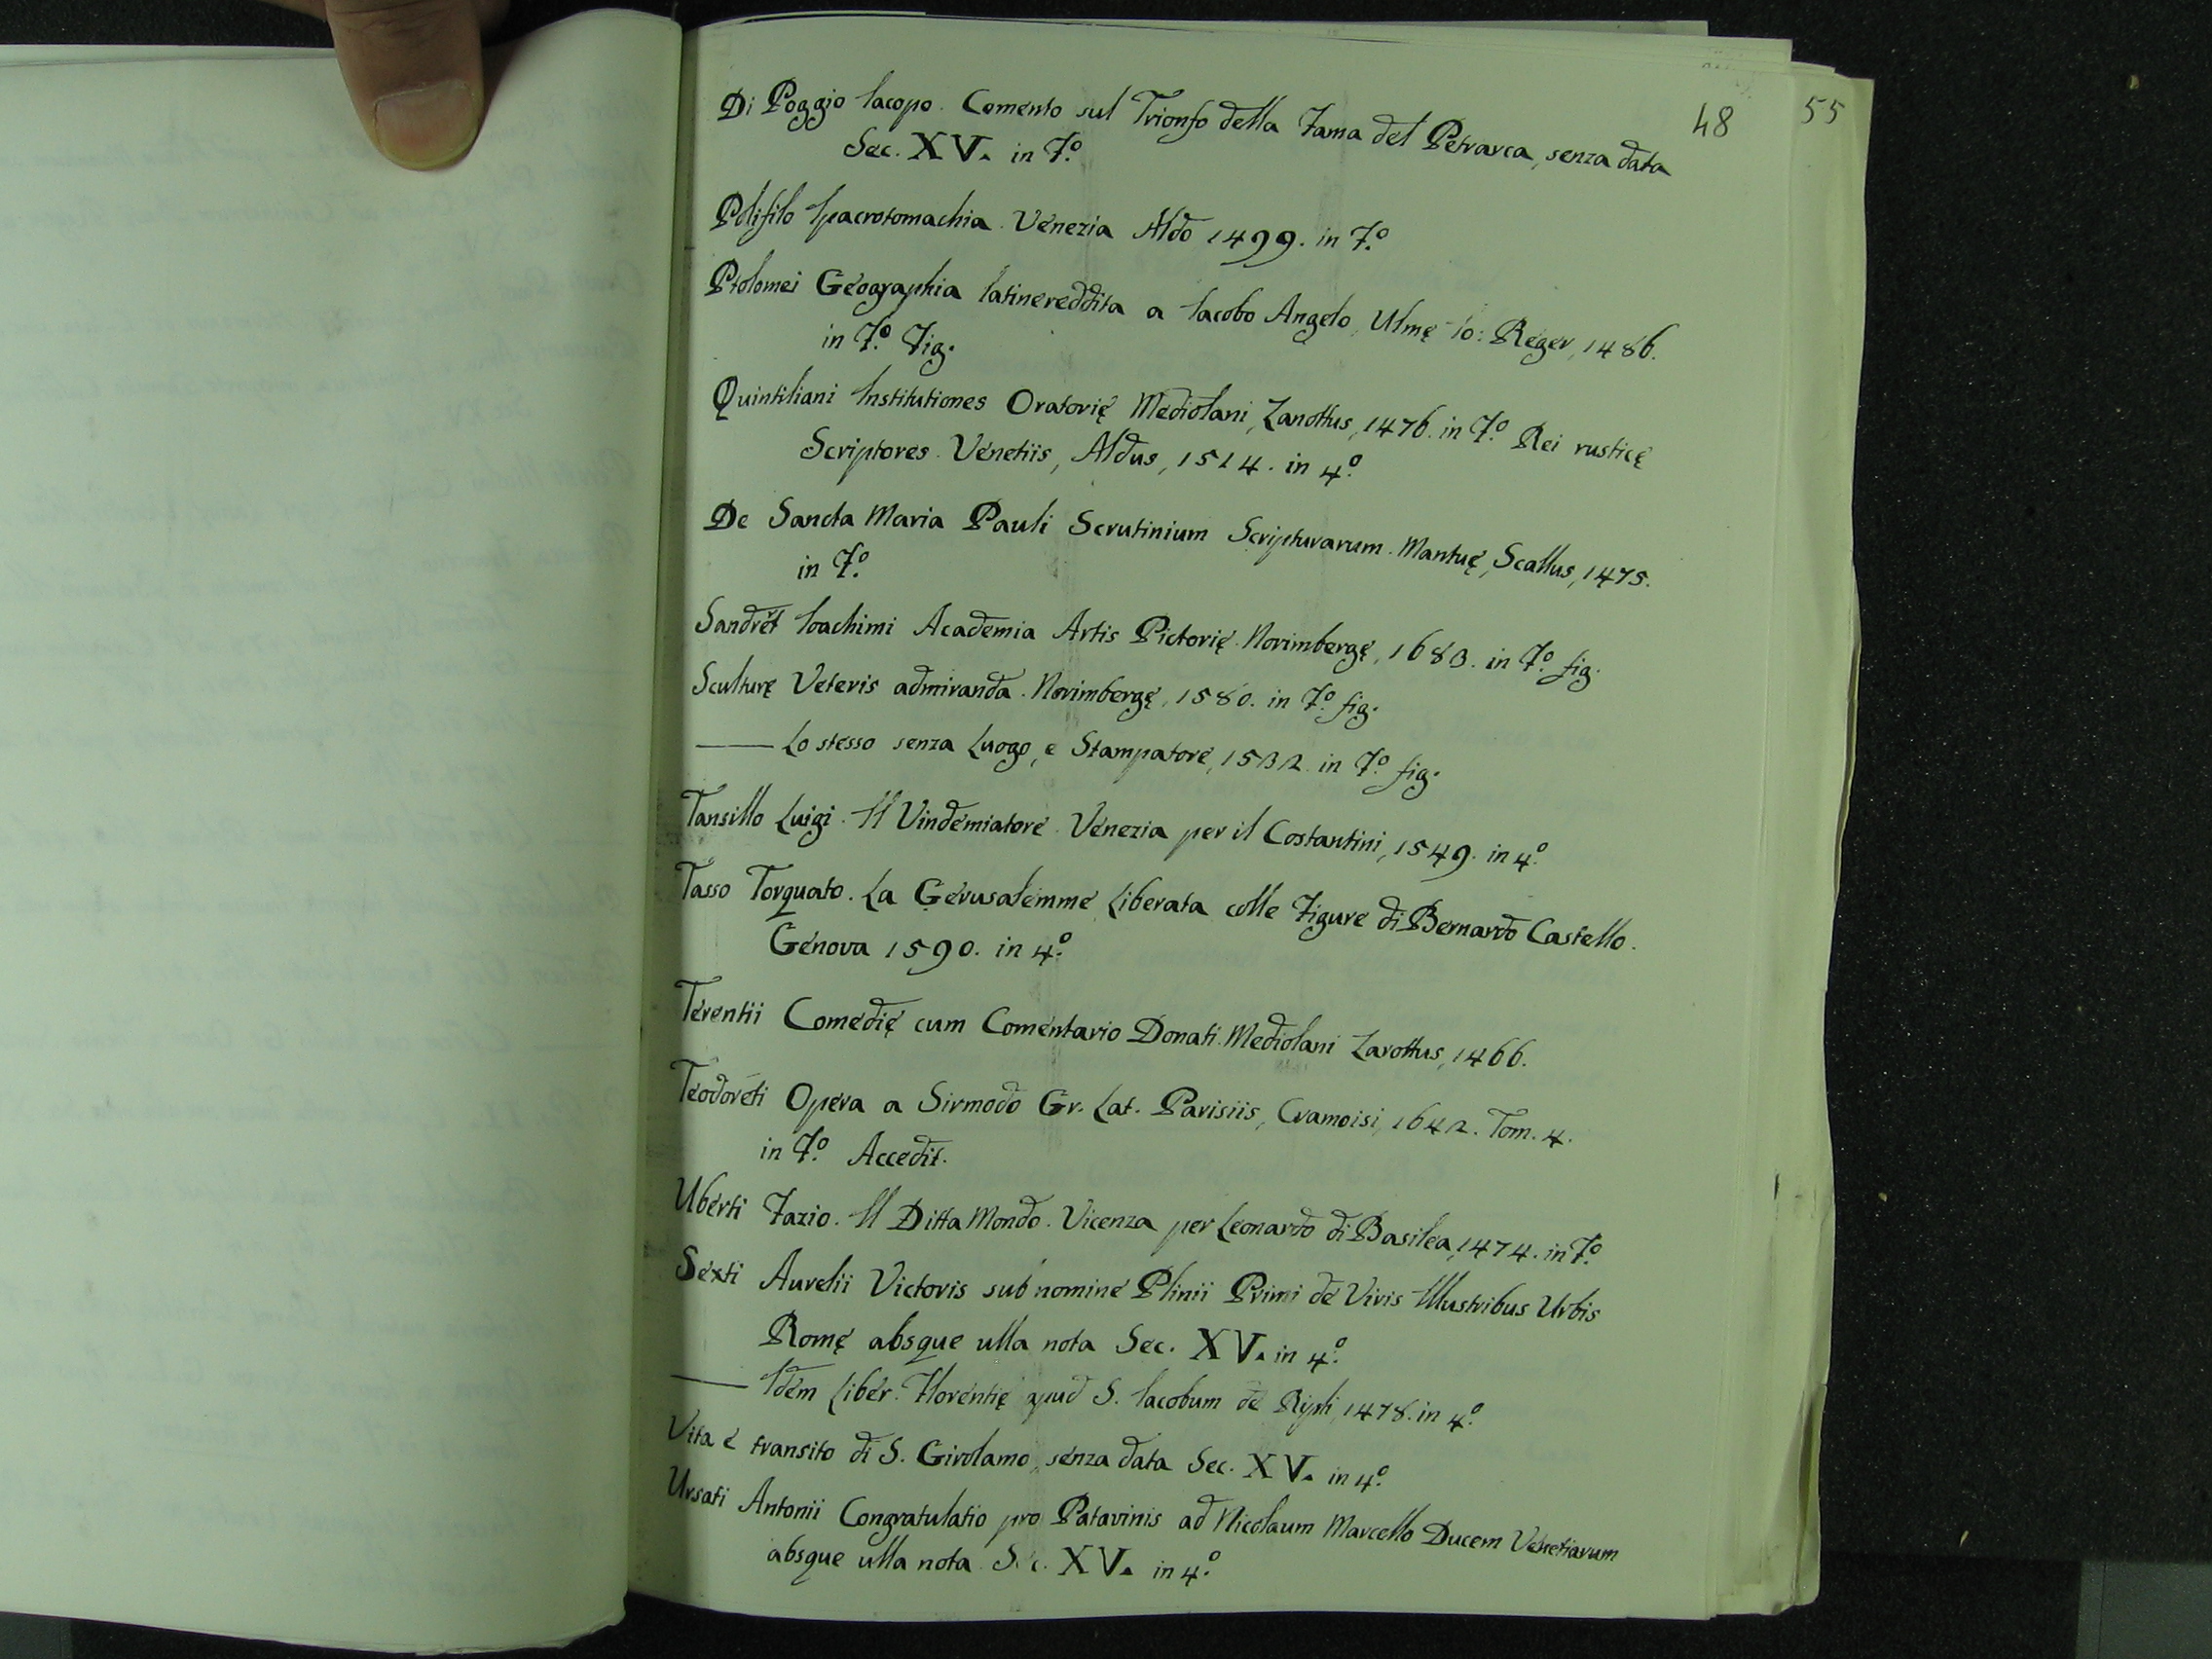 48
55
Di Poggio Iacopo. Comento sul Trionfo della Fama del Petrarca, senza data
Sec. XV. in F.º
Polifilo Ipacrotomachia. Venezia Aldo 1499. in F.º
Ptolomei Geographia latinereddita a Iacobo Angelo, Ulmę Io: Reger, 1486.
in F.º Fig.
Quintiliani Institutiones Oratorię Mediolani, Zanottus, 1476. in F.º Rei rusticę
Scriptores. Venetiis, Aldus, 1514. in 4.º
De Sancta Maria Pauli Scrutinium Scripturarum. Mantuę, Scallus, 1475.
in F.º
Sandrȓt Ioachimi Academia Artis Pictorię. Norimbergę, 1683. in F.º fig.
Sculturę Veteris admiranda. Norimbergę, 1580. in F.º fig.
—— Lo stesso senza Luogo, e Stampatore, 1532. in F.º fig.
Tansillo Luigi. Il Vindemiatore. Venezia per il Costantini, 1549. in 4.º
Tasso Torquato. La Gerusalemme Liberata colle Figure di Bernardo Castello.
Genova 1590. in 4.º
Terentii Comedię cum Comentario Donati. Mediolani Zarottus, 1466.
Teodoreti Opera a Sirmodo Gr. Lat. Parisiis, Cramoisi, 1642. Tom. 4.
in F.º Accedit.
Uberti Fazio. Il Ditta Mondo. Vicenza per Leonardo di Basilea, 1474. in F.º
Sexti Aurelii Victoris sub nomine Plinii Primi de Viris Illustribus Urbis
Romę absque ulla nota Sec. XV. in 4.º
—— Idem Liber. Florentię apud S. Iacobum de Ripoli, 1478. in 4.º
Vita e transito di S. Girolamo, senza data Sec. XV. in 4.º
Ursati Antonii Congratulatio pro Patavinis ad Nicolaum Marcello Ducem Venetiarum
absque ulla nota. Sec. XV. in 4.º